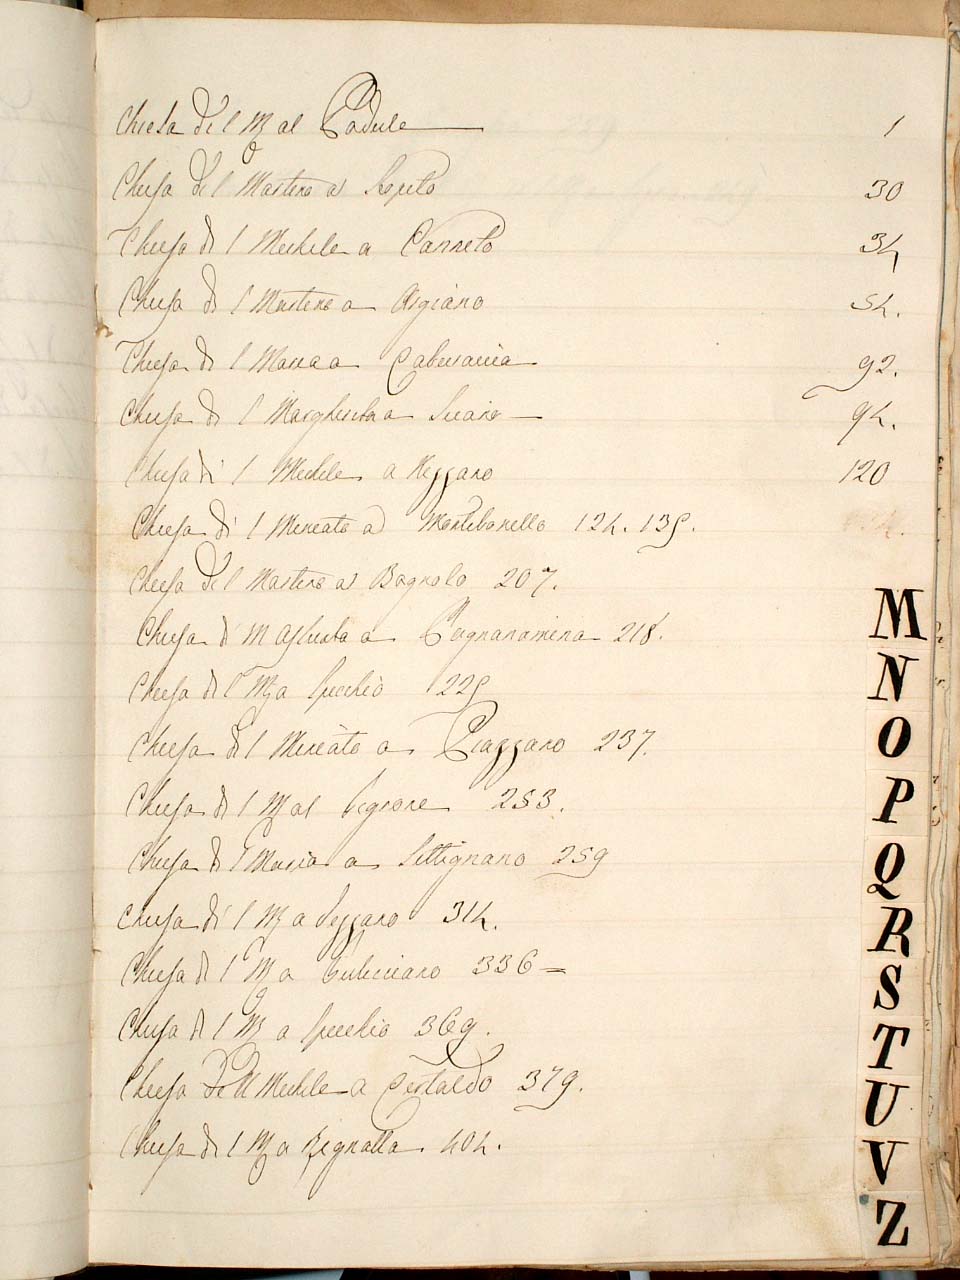 Chiesa di S M al Padule 1
Chiesa di S Martino a Sopeto 30
Chiesa di S Michele a Canneto 34
Chiesa di S Martino a Argiano 54.
Chiesa di S Maria a 92.
Chiesa di S Margherita a 94.
Chiesa di S Michele a 120
Chiesa di S Miniato a Montebonello 124. 135.
Chiesa di S Martino a Bagnolo 207.
Chiesa di M Assunta a 218.
Chiesa di S M a Specchio 225
Chiesa di S Miniato a Piazzano 237.
Chiesa di S M al 253.
Chiesa di S Maria a Settignano 259
Chiesa di S M a 314.
Chiesa di S M a 336
Chiesa di S M a Specchio 369.
Chiesa di S Michele a Certaldo 379.
Chiesa di S M a Rignalla 404.
M
N
O
P
Q
R
S
T
U
V
Z